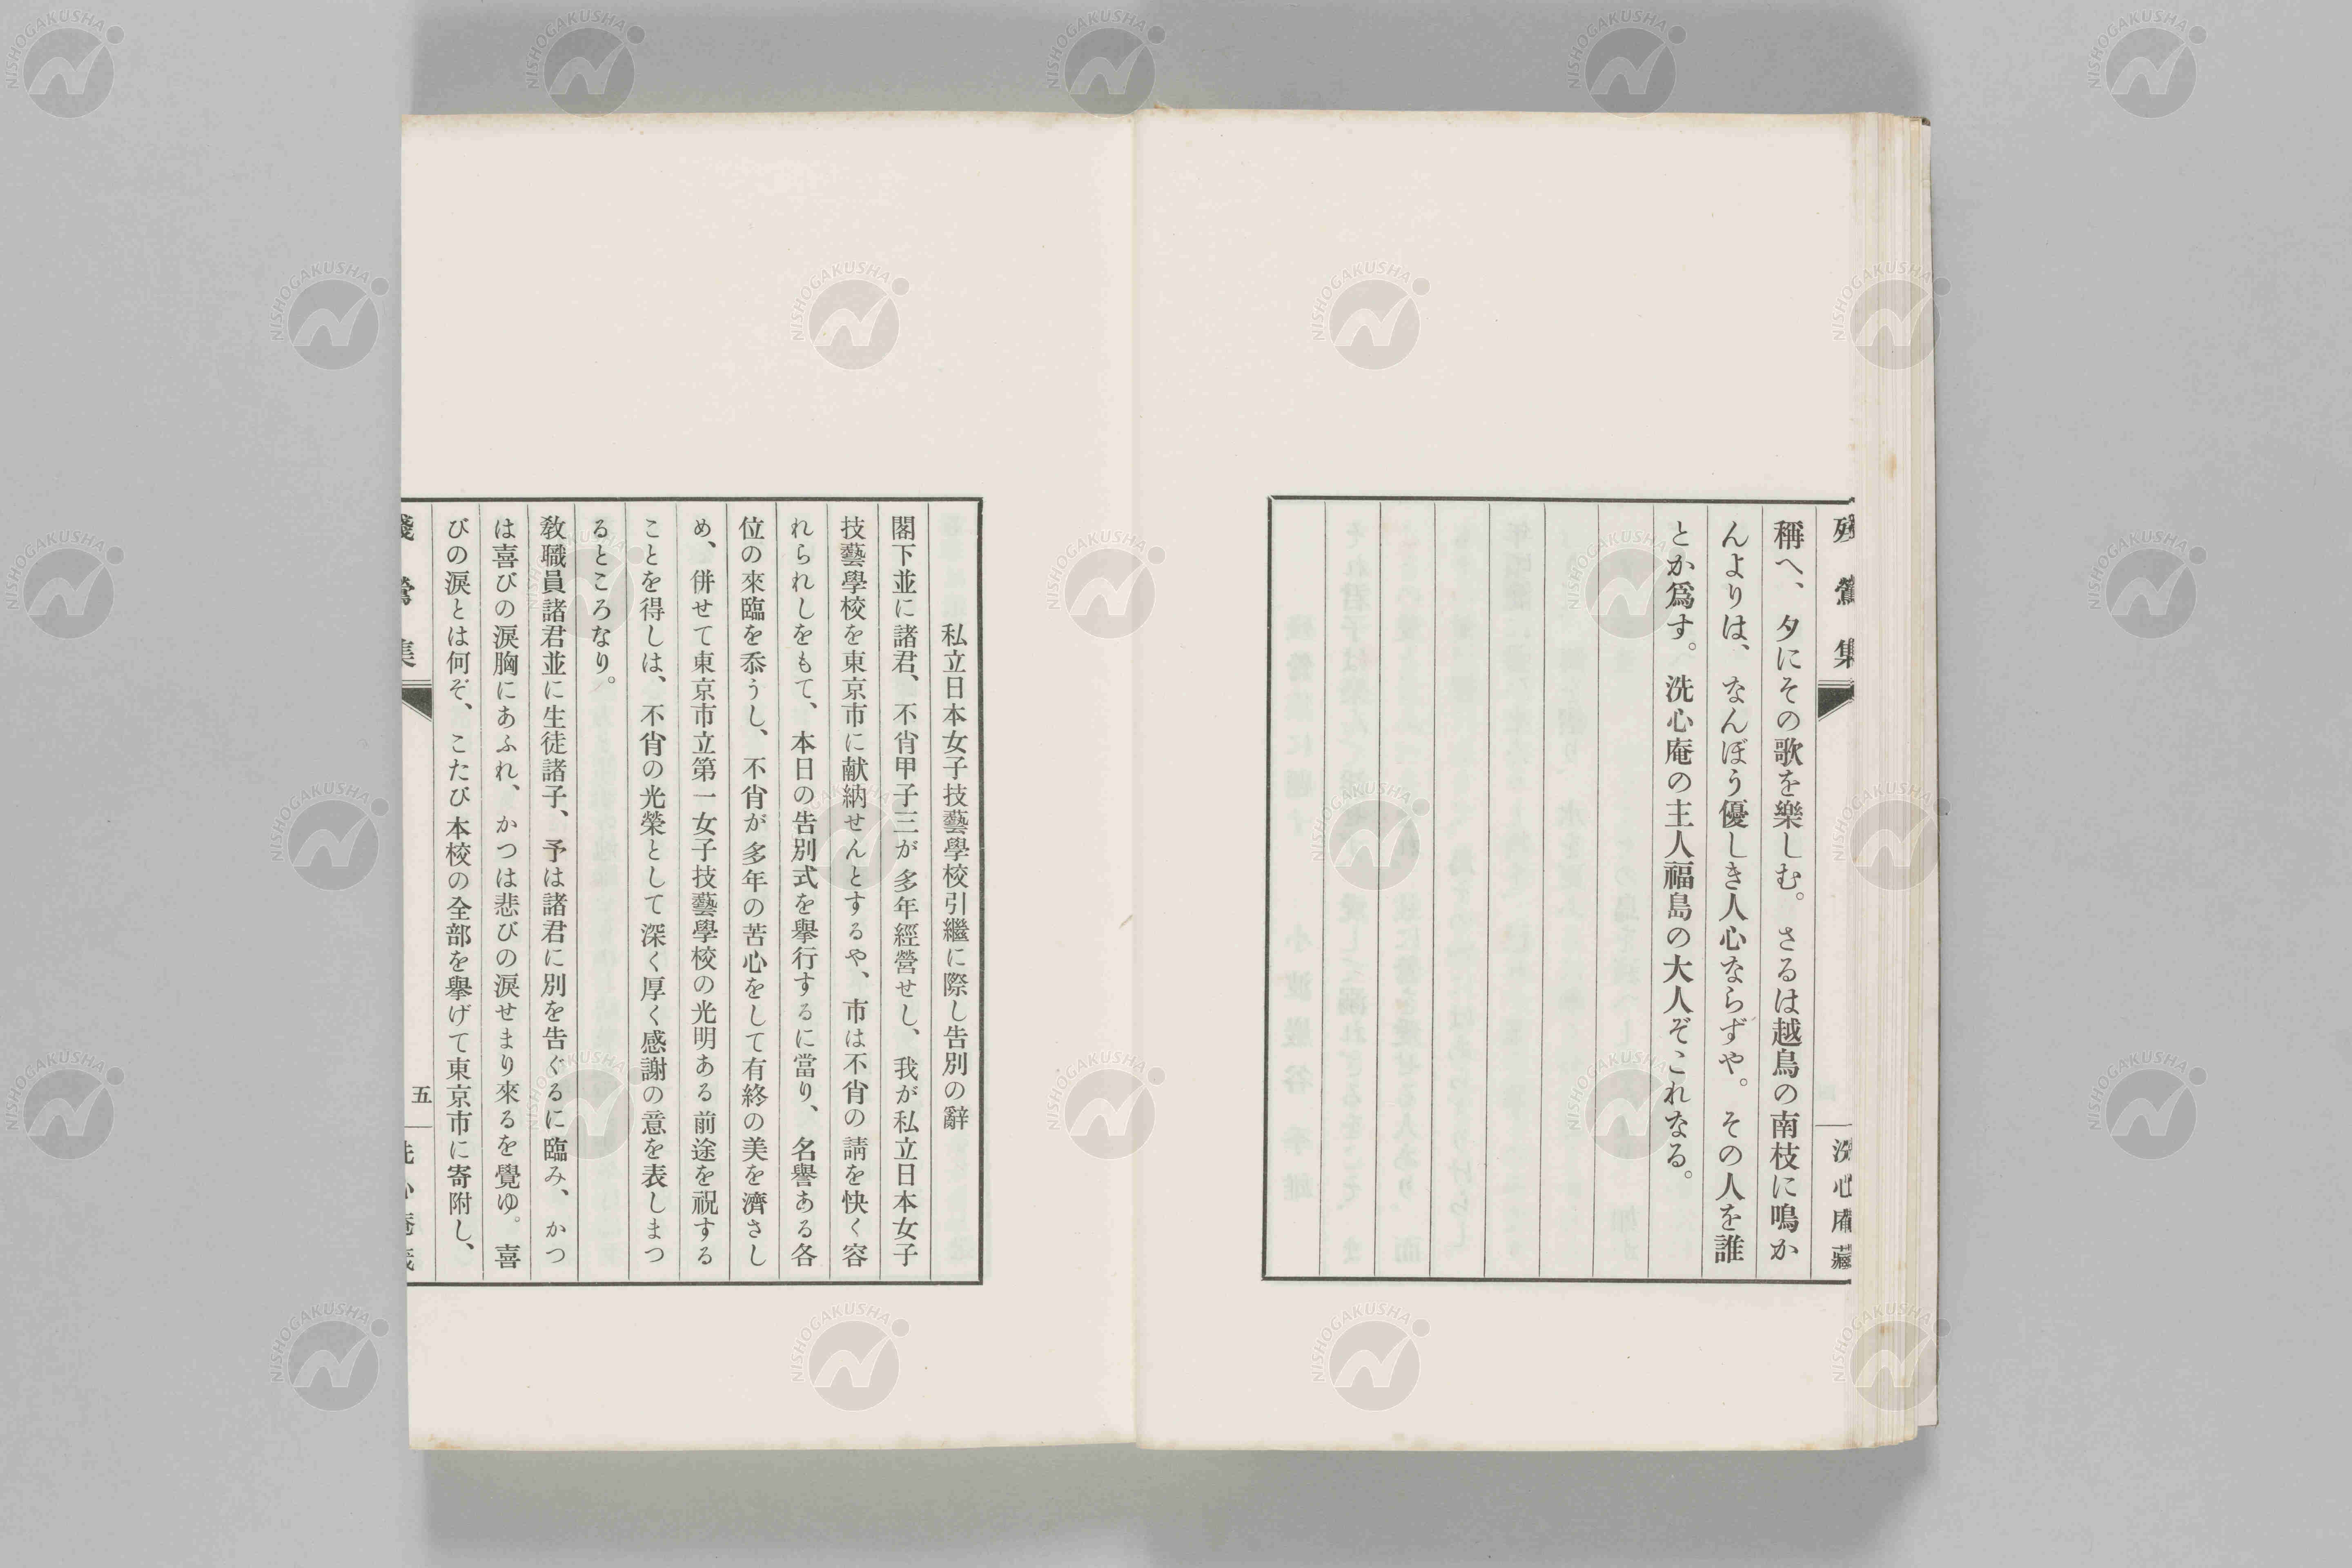 殘鶯集
洗心庵藏
稱へ、夕にその歌を樂しむ。さるは越鳥の南枝に鳴か
んよりは、なんぼう優しき人心ならずや。その人を誰
とか爲す。洗心庵の主人福島の大人ぞこれなる。
私立日本女子技藝學校引繼に際し告別の辭
閣下並に諸君、不肖甲子三が多年經營せし、我が私立日本女子
技藝學校を東京市に献納せんとするや、市は不肖の請を快く容
れられしをもて、本日の告別式を擧行するに當り、名譽ある各
位の來臨を忝うし、不肖が多年の苦心をして有終の美を濟さし
め、併せて東京市立第一女子技藝學校の光明ある前途を祝する
ことを得しは、不肖の光榮として深く厚く感謝の意を表しまつ
るところなり。
敎職員諸君並に生徒諸子、予は諸君に別を告ぐるに臨み、かつ
は喜びの涙胸にあふれ、かつは悲びの涙せまり來るを覺ゆ。喜
びの涙とは何ぞ、こたび本校の全部を擧げて東京市に寄附し、
殘鶯集
五
洗心庵藏
NISHOGAKUSHA